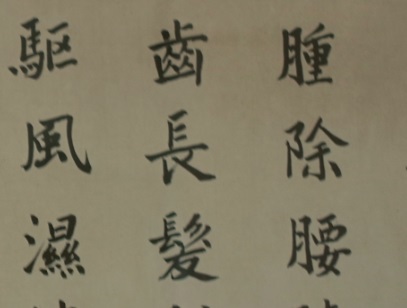 腫除腰
齒長髮
驅風濕